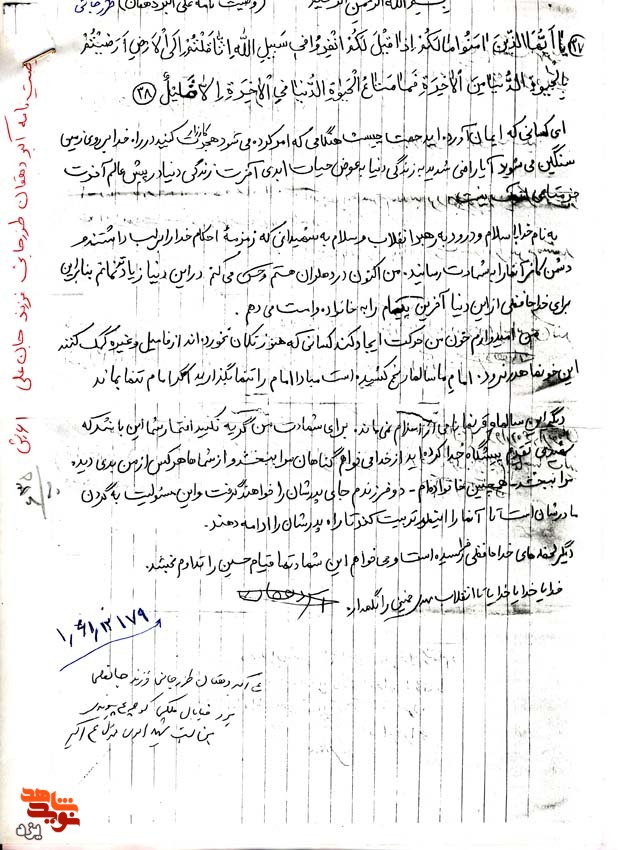 بسم الله الرحمن الرحیم (وصیت نامه علی اکبر دهقان) طزرجانی
۳۷ یا اَیُّهَا الَّذینَ امَنُوا مالَکُمْ اِذا قیلَ لَکُمْ انْفِرُوا فی سَبیلِ اللهِ اثّاقَلْتُمْ اِلَی الْاَرْضِ اَرَضیتُمْ
بِالْحَیوةِ الدُّنْیا مِنَ الْاخِرَةِ فَما مَتاعُ الْحَیوةِ الدُّنْیا فِی الْاخِرَةِ اِلّا قَلیلٌ ۳۸
ای کسانی که ایمان آورده اید جهت چیست هنگامی که امر کرده می شود در راه خدا بر روی زمین
سنگین می شوید آیا راضی شدید به زندگی دنیا به عوض حیات ابدی آخرت زندگی دنیا در پیش عالم آخرت
به نام خدا با سلام و درود به رهبر انقلاب و سلام به شهیدانی که زمزمهٔ احکام خدا را بر لب داشتند و
دشمن کافر آنها را به شهادت رسانید. من اکنون در دهلران هستم و حس می کنم در این دنیا زیاد نمانم بنابراین
برای خداحافظی از این دنیا آخرین پیام را به خانواده و امت می دهم.
من امیدوارم خون من حرکت ایجاد کند کسانی که هنوز تکان نخورده اند از فامیل و غیره کمک کنند
این خونها هدر نرود. امام ما سالها رنج کشیده است مبادا امام را تنها بگذارید اگر امام تنها بماند
دیگر این سالها و قرنها نامی از اسلام نمی ماند. برای شهادت من گریه نکنید افتخار شما این باشد که
شهیدی تقدیم پیشگاه خدا کرده اید از خدا می خواهم گناهان مرا ببخشد و از شماها هر کس از من بدی دیده
مرا ببخشد. همچنین خانواده ام - دو فرزندم جای پدرشان را خواهند گرفت و این مسئولیت به گردن
مادرشان است تا آنها را اینطور تربیت کند تا راه پدرشان را ادامه دهند.
دیگر لحظه های خداحافظی فرا رسیده است و می خواهم این شهادتها قیام حسین را تداوم بخشد.
خدایا خدایا تا انقلاب مهدی خمینی را نگهدار.
۱۷۹
علی اکبر دهقان طزرجانی فرزند جانعلی
یزد خیابان
وصیت نامه اکبر دهقان طزرجانی فرزند جان علی
نوید شاهد
یزد